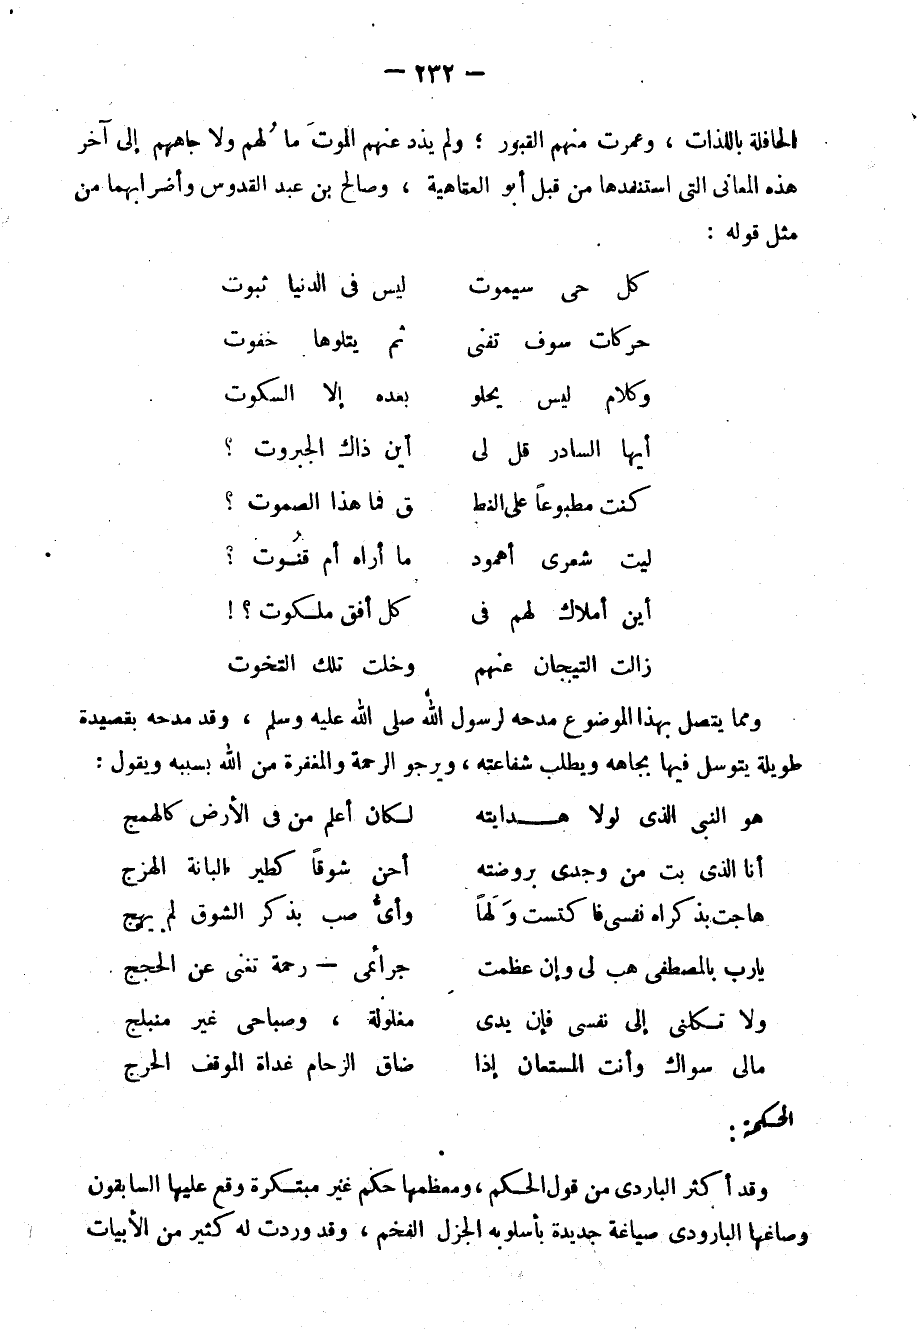 — ٢٣٢ —
الحافلة باللذات ، وعمرت منهم القبور ؛ ولم يذد عنهم الموتَ مالُهم ولا جاههم إلى آخر
هذه المعانى التى استنفدها من قبل أبو العتاهية ، وصالح بن عبد القدوس وأضرابهما من
مثل قوله :
كل حى سيموت ليس فى الدنيا ثبوت
حركات سوف تفنى ثم يتلوها خفوت
وكلام ليس يحلو بعده إلا السكوت
أيها السادر قل لى أين ذاك الجبروت ؟
كنت مطبوعاً على النط ق فما هذا الصموت ؟
ليت شعرى أهمود ما أراه أم قُنُوت ؟
أين أملاك لهم فى كل أفق ملكوت ؟ !
زالت التيجان عنهم وخلت تلك التخوت
ومما يتصل بهذا الموضوع مدحه لرسول الله صلى الله عليه وسلم ، وقد مدحه بقصيدة
طويلة يتوسل فيها بجاهه ويطلب شفاعته ، ويرجو الرحمة والمغفرة من الله بسببه ويقول :
هو النبى الذى لولا هدايته لكان أعلم من فى الأرض كالهمج
أنا الذى بت من وجدى بروضته أحن شوقاً كطير البانة الهزج
هاجت بذكراه نفسى فاكتست وَلَهاً وأىُّ صب بذكر الشوق لم يهج
يارب بالمصطفى هب لى وإن عظمت جرائمى — رحمة تغنى عن الحجج
ولا تكلنى إلى نفسى فإن يدى مغلولة ، وصباحى غير منبلج
مالى سواك وأنت المستعان إذا ضاق الزحام غداة الموقف الحرج
الحكمة :
وقد أكثر الباردى من قول الحكم ، ومعظمها حكم غير مبتكرة وقع عليها السابقون
وصاغها البارودى صياغة جديدة بأسلوبه الجزل الفخم ، وقد وردت له كثير من الأبيات